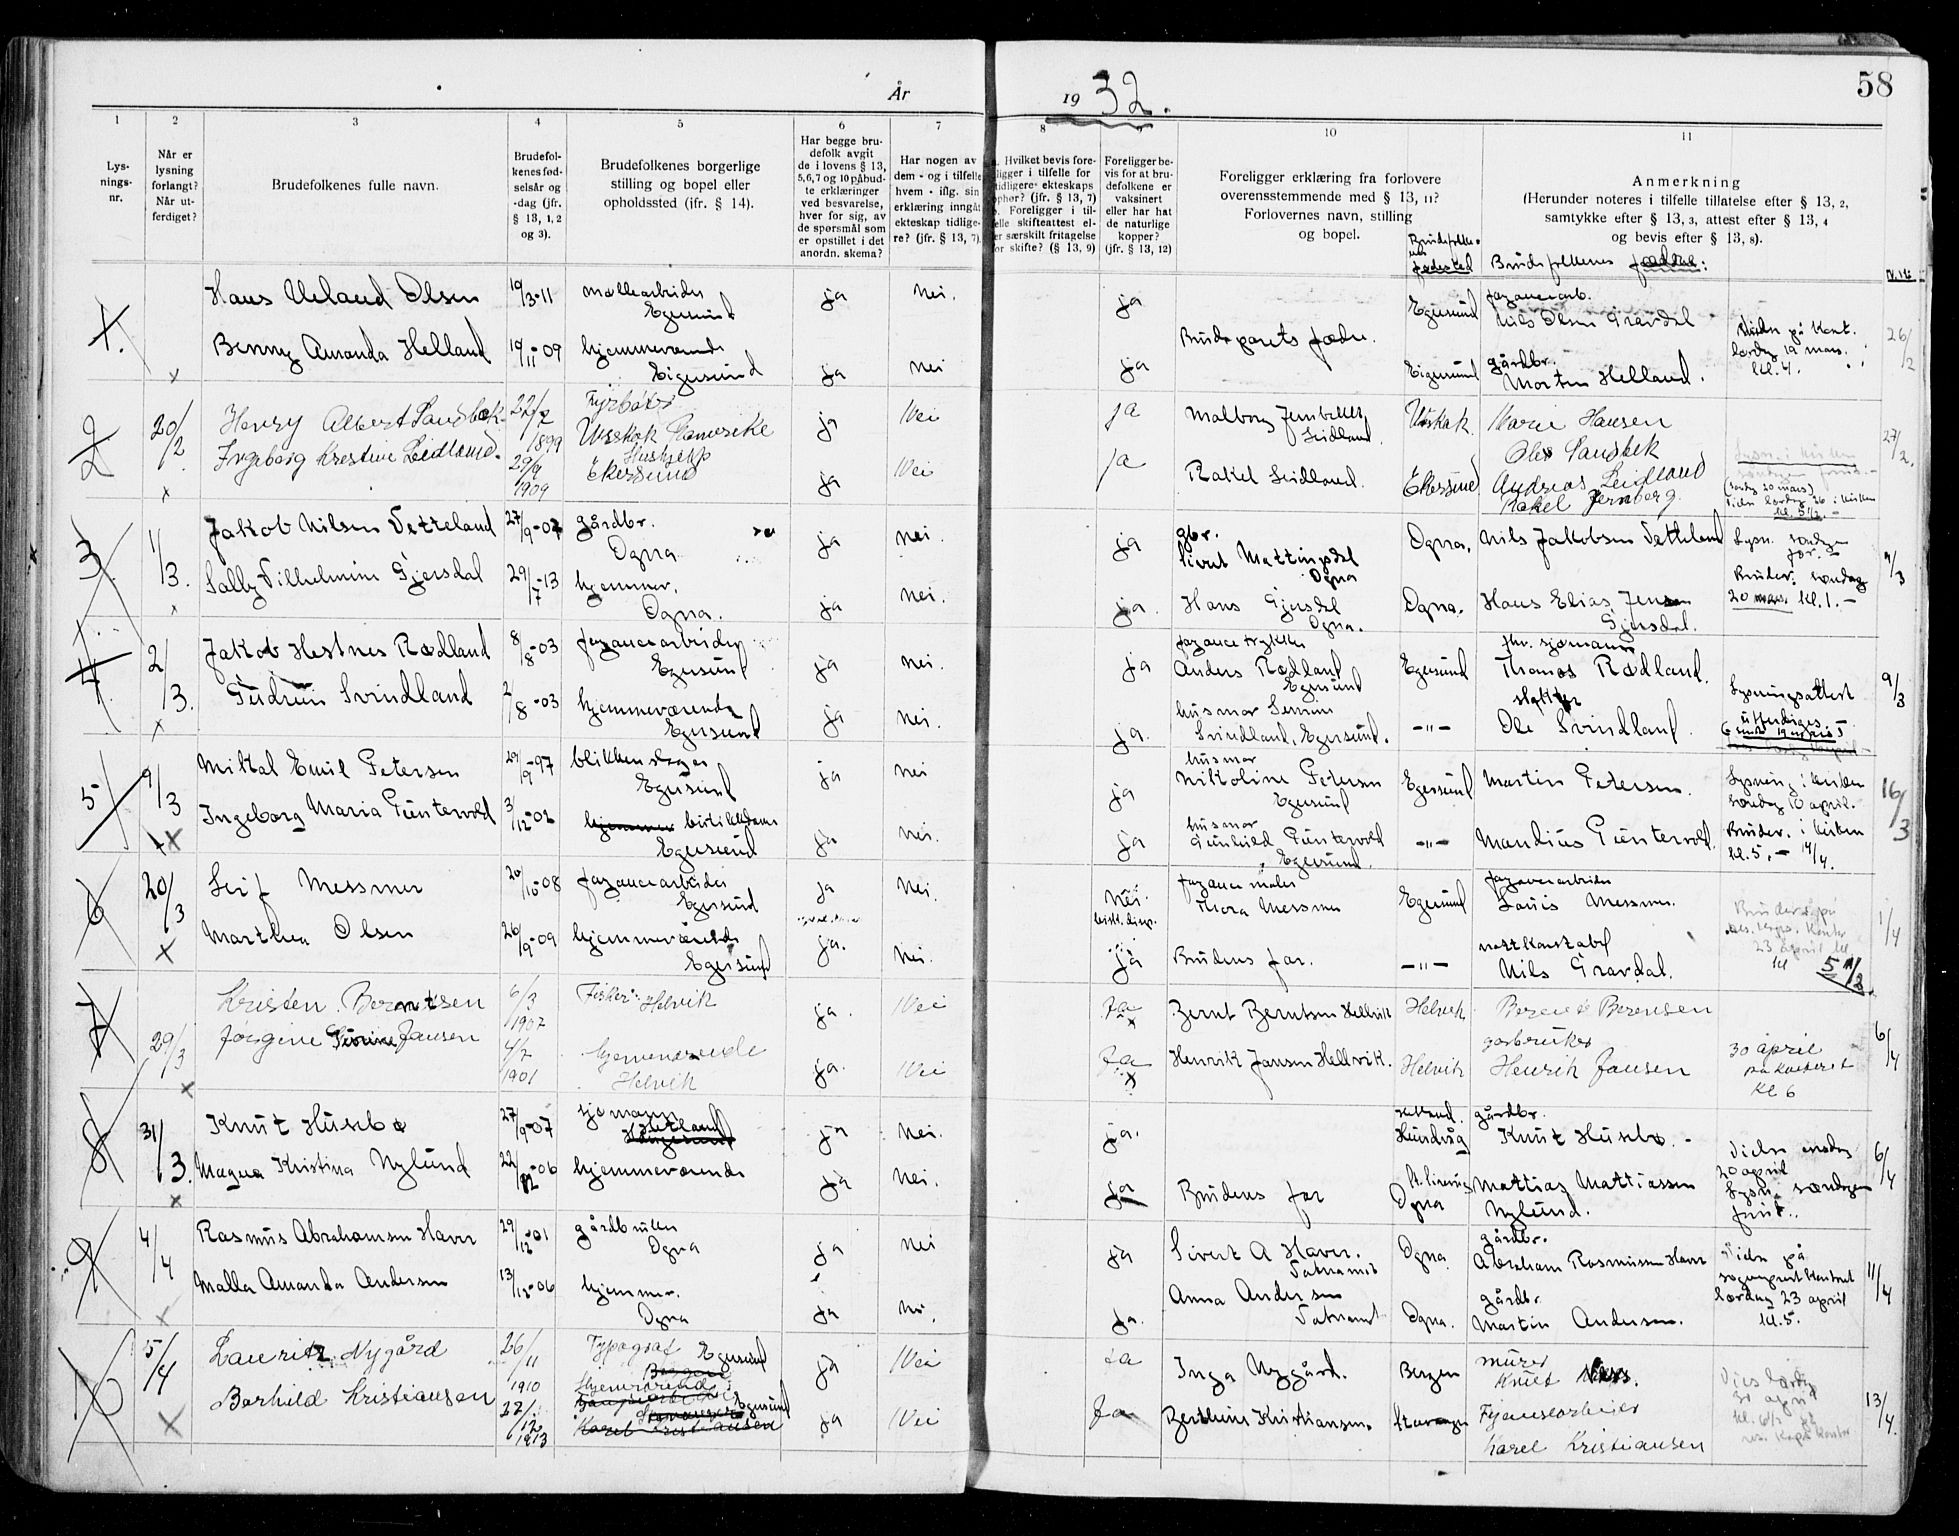 58
År 1932.
1 2 3 4 5 6 7 8 9 10 11
Lys-
nings-
nr.
Når er
lysning
forlangt?
Når ut-
ferdiget?
Brudefolkenes fulle navn.
Brudefol-
kenes fød-
selsår og
-dag (jfr.
§ 13, 1, 2
og 3).
Brudefolkenes borgerlige
stilling og bopel eller
opholdssted (ifr. § 14).
Har begge bru-
defolk avgit
de i lovens § 13,
5,6,7 og 10 påbud-
te erklæringer
ved besvarelse,
hver for sig, av
de spørsmål som
er opstillet i det
anordn. skema?
Har nogen av
dem - og i tilfelle
hvem - iflg. sin
erklæring inngåt
ekteskap tidlige-
re? (jfr. § 13, 7).
Hvilket bevis fore-
ligger i tilfelle for
tidligere ekteskaps
ophør? (jfr. § 13, 7)
Foreligger i til-
felle skifteattest el-
ler særskilt fritagelse
for skifte? (§ 13, 9)
Foreligger be-
vis for at bru-
defolkene er
vaksinert
eller har hat
de naturlige
kopper?
(jfr. § 13, 12)
Foreligger erklæring fra forlovere
overensstemmende med § 13, 11?
Forlovernes navn, stilling
og bopel.
Brudefolke-
nes
fødested
Anmerkning
(Herunder noteres i tilfelle tillatelse efter § 13, 2,
samtykke efter § 13, 3, attest efter § 13, 4
og bevis efter § 13, 8).
Brudefolkenes fædre:
1.
Hans Ueland Olsen 19/3-11 møllearbeider Egersund ja Nei. ja Egersund fayancearb. Nils Olsen Gravdal
Benny Amanda Helland 19/11-09 hjemmeværende Eigersund ja Nei ja Brudeparets fædre. Eigersund gårdbr. Morten Helland.
Vides på kont. lørdag 19 mars. kl. 4. 26/2
2 20/2
Henry Albert Sandbek 22/2 1899 Fyrbøter ja Nei ja Malborg Jernberg Leidland. Marie Hansen
Ole Sandbek
Ingeborg Krestine Leidland. 29/9 1909 Hushjelp Ekersund ja Nei ja Rakel Leidland. Ekersund Andreas Leidland
Rakel Jernberg
27/2.
3. 1/3.
Jakob Nilsen Vetteland 27/9-07 gårdbr. Ogna ja Nei. ja gbr. Sivert Mattingsdal Ogna Ogna. Nils Jakobsen Vetteland
Sally Vilhelmine Gjersdal 29/7-13 hjemmev. Ogna. ja Nei. ja. Hans Gjersdal Ogna. Ogna. Hans Elias Jensen Gjersdal.
Lysn. søndagen før.
Brudev. søndag 20 mars. kl. 1. - 9/3
4. 2/3.
Jakob Hestnes Rødland 8/8-03 fayancearbeider Egersund ja Nei. ja fayancetrykker Anders Rødland Egersund Egersund fhv. sjømann Thomas Rødland.
Gudrun Svindland 2/8-03 hjemmeværende Egersund ja Nei. ja. husmor Svindland, Egersund. -"- slakter Ole Svindland.
Lysningsattest utferdiges 9/3
5 9/3
Mikal Emil Petersen 29/9-97 blikkenslager Egersund ja Nei ja husmor Nikoline Petersen Egersund Egersund Martin Petersen.
Ingeborg Maria Puntervold 3/12-02 butikkdame Egersund ja Nei. ja husmor Gunhild Puntervold Egersund. -"- Mandius Puntervold.
Lysning i kirken søndag 10 april.
Brudev. i kirken kl. 5. - 14/4. 16/3
6 20/3
Leif Messmer 20/10-08 fayancearbeider Egersund ja Nei. Nei. fayancemaler Thora Messmer Egersund fayancearbeider Louis Messmer.
Marthea Olsen 26/9-09 hjemmeværende Egersund ja. Nei. ja Brudens far. -"- nattkonstabel Nils Gravdal.
23 april kl 5 1/2. 1/4
7 29/3
Kristen Berntsen 6/3 1907 Fisker Helvik ja. Nei Ja Bernt Berntsen Hellvik Helvik Bernt Berensen
Jørgine Severine Jansen 4/2 1901 hjemmeværende Helvik ja. Nei Ja Henrik Jansen Hellvik. Helvik gårbruker Henrik Jansen
30 april
på kontoret
Kl 6 6/4
8 31/3.
Knut Husebø 27/9-07 sjømann Hetland ja Nei. ja. Hetland. Hundvåg gårdbr. Knut Husebø. -
Magna Kristina Nylund 22/12-06 hjemmeværende ja Nei. ja Brudens far Ogna Mattias Mattiassen Nylund.
Vides onsdag 20 april
Lysn. søndagen forut. 6/4
9 4/4
Rasmus Abrahamsen Havn 29/12-01 gårdbruker Ogna ja Nei ja Sivert A Havn. Ogna gårdbr. Abraham Rasmussen Havn
Malla Amanda Andersen 13/12-06 hjemmev. Ogna ja Nei. ja. Anna Andersen Ogna. gårdbr. Martin Andersen.
Vides på sogneprest kontoret lørdag 23 april kl. 5. 11/4
10 5/4
Lauritz Nygård 26/11 1910 Typograf Egersund ja Nei Ja Inga Nygård. Bergen murer Knut
Borhild Kristiansen 27/12 1913 Hjemværende Egersund ja Nei Ja Berthine Kristiansen. Stavanger Karel Kristiansen
30 april 13/4.